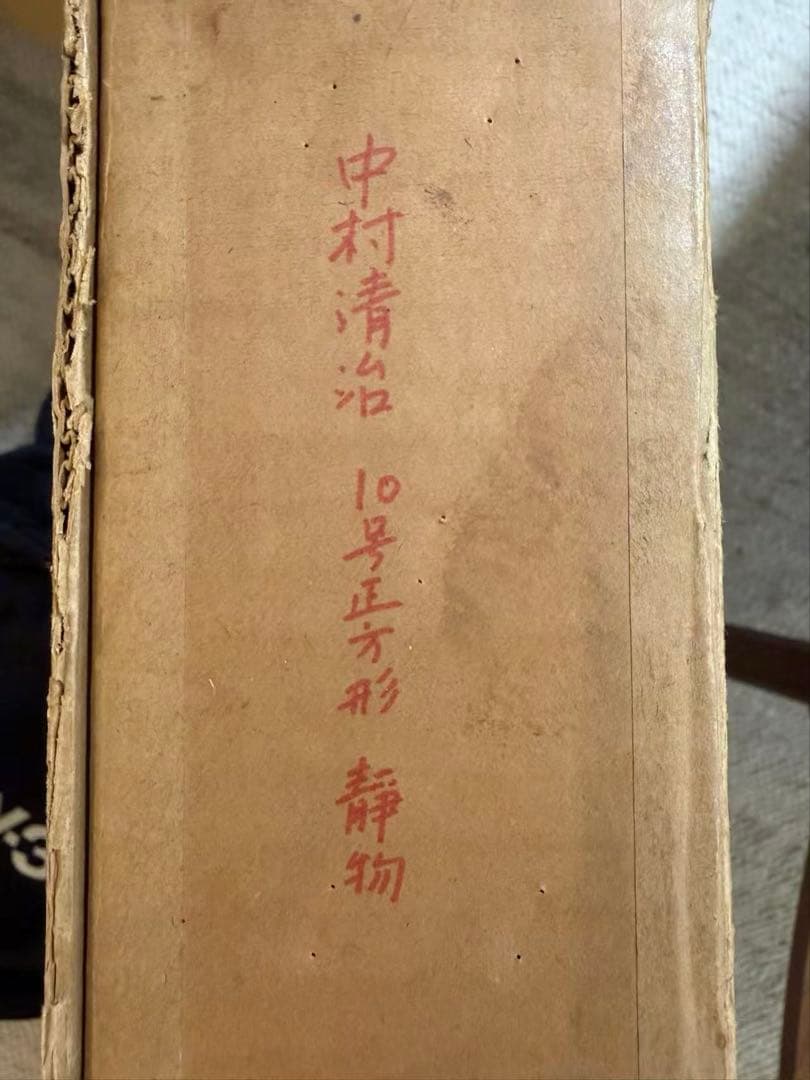 中村清治 10号正方形 靜物